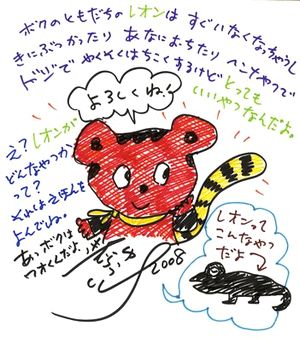 ボクのともだちのレオンは すぐいなくなっちゃうし
きにぶつかったり あなにおちたり ヘンなやつで
ドジで やくそくはちこくするけど とっても
いいやつなんだよ。
よろしくね!
え?レオンが
どんなやつか
って?
それはえほんを
よんでね。
あっボクは
ウオくんだよ
2008
レオンって
こんなやつ
だよ